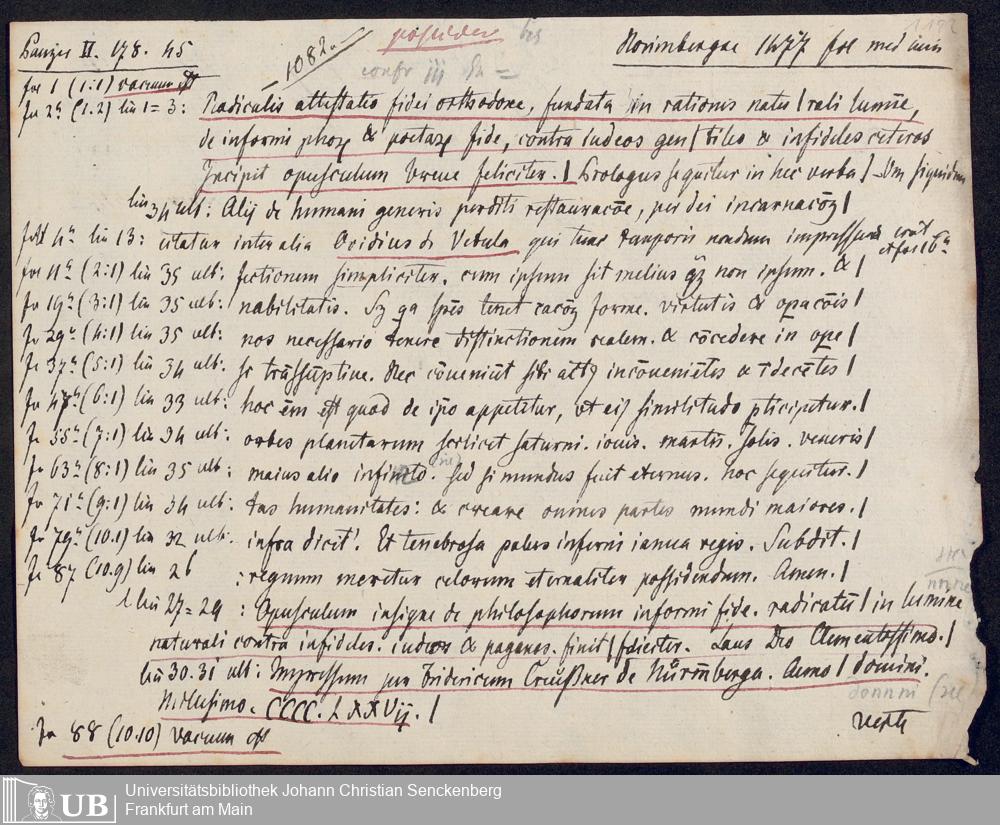 Panzer II. 178. 45
1082.
possideo bis
confr iii
Norimbergae 1477 fol med min
fol 1 (1:1) vacuum est
fo 2a (1.2) lin 1=3: Radicalis attestatio fidei orthodoxe, fundata in rationis natu|rali lumīe,
de informi phoꝝ & poetaꝝ fide, contra iudeos gen|tiles & infideles ceteros
Incipit opusculum breue feliciter. | Prologus sequitur in hec verba | Vm siquidem
lin 34 ult: Alij de humani generis perditi restauracōe, per dei incarnacōꝫ |
4a lin 13: citatur inter alia Ovidius de Vetula qui tunc temporis nondum impressus
fo 11a (2:1) lin 35 ult: fectionum simpliciter. cum ipsum sit melius qꝫ non ipsum. & |
fo 19a (3:1) lin 35 ult: nabilitatis. Sꝫ qa spēs tenet racōꝫ forme. virtutis & opacōis |
fo 29a (4:1) lin 35 ult: nos necessario tenere distinctionem realem. & cōcedere in ope |
fo 37a (5:1) lin 34 ult: sc trāssūptiue. Nec cōueniūt sibi actꝰ incōuenietes & īdecētes |
fo 47a (6:1) lin 33 ult: hoc ēm est quod de ipo appetitur, vt eiꝰ similitudo pticipetur. |
fo 55a (7:1) lin 34 ult: orbes planetarum scilicet saturni. iouis. martis. solis. veneris |
fo 63a (8:1) lin 35 ult: maius alio infinito. sed si mundus fuit eternus. hoc sequitur. |
fo 71a (9:1) lin 34 ult: tas humanitates: & creare omnes partes mundi maiores. |
fo 79a (10.1) lin 32 ult: infra dicit'. Et tenebrosa palus inferni ianua regis. Subdit. |
fo 87 (10.9) lin 26 : regnum meretur celorum eternaliter possidendum. Amen. |
lin 27=29 : Opusculum insigne de philosophorum informi fide. radicatū | in lumine
naturali contra infideles. iudeos & paganos. finit | feliciter. Laus Deo Clementissimo. |
lin 30.31 ult: Impressum per Fridericum Creüßner de Nürmberga. Anno | domini.
Millesimo. CCCC. LXXVij. |
fo 88 (10.10) vacuum est
verte
UB
Universitätsbibliothek Johann Christian Senckenberg
Frankfurt am Main